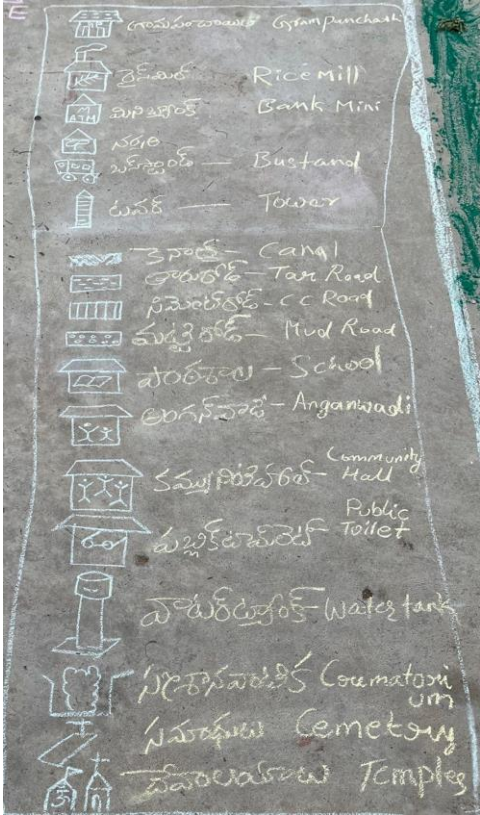 గ్రామపంచాయితి Grampanchath
రైస్ మిల్ Rice Mill
మినీ బ్యాంక్ Bank Mini
ATM
బస్టాండ్ — Bustand
టవర్ — Tower
కెనాల్ - Canal
తారురోడ్ - Tar Road
సిమెంట్ రోడ్ - CC Road
మట్టి రోడ్ - Mud Road
పాఠశాల - School
అంగన్ వాడి - Anganwadi
కమ్యునిటి హాల్ - Community Hall
పబ్లిక్ టాయిలెట్ - Public Toilet
వాటర్ ట్యాంక్ - Water tank
స్మశానవాటిక Coumatorium
సమాధులు Cemetory
దేవాలయాలు Temples